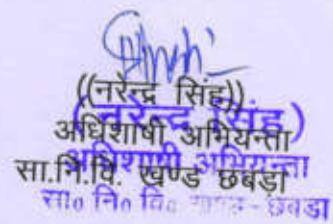 ((नरेन्द्र सिंह))
(नरेन्द्र सिंह)
अधिशाषी अभियन्ता
अधिशाषी अभियन्ता
सा.नि.वि. खण्ड छबड़ा
सा० नि० वि० खण्ड - छबडा